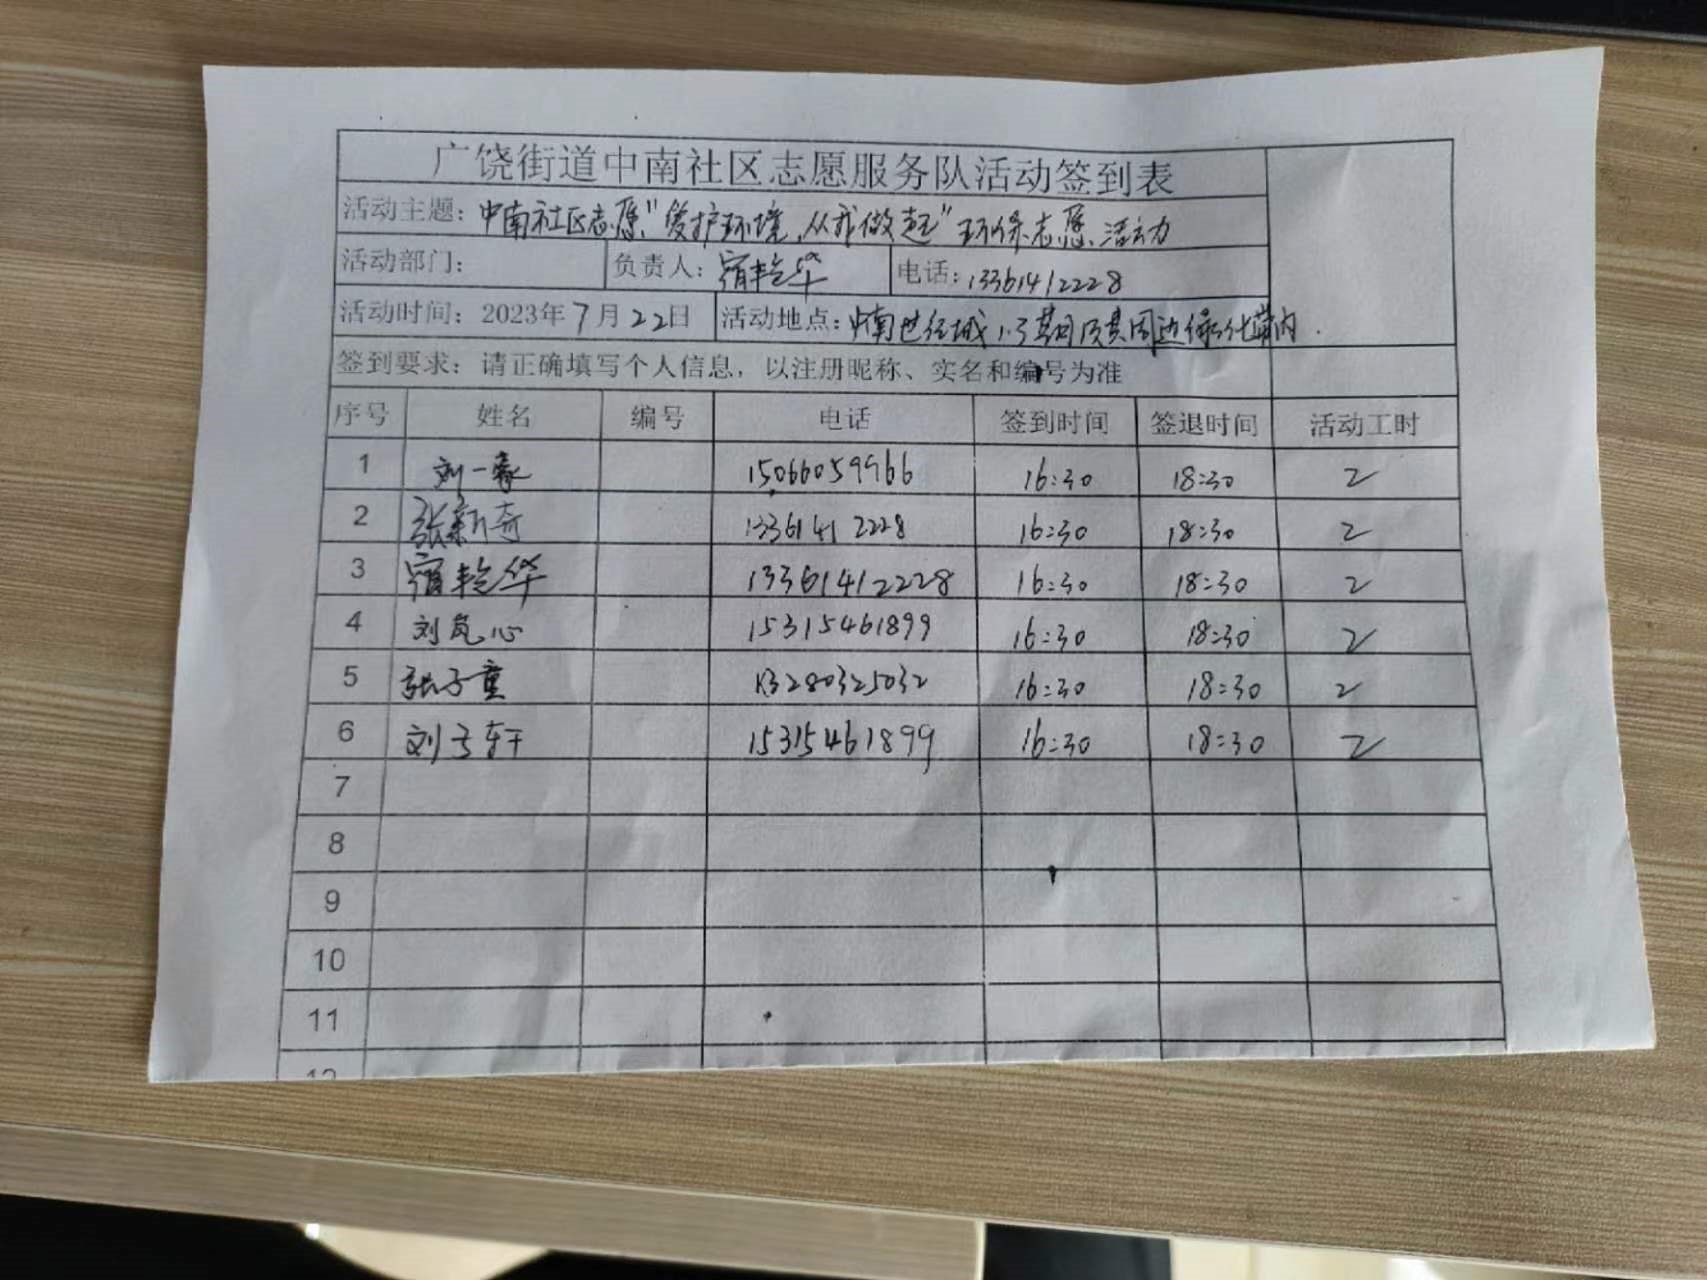 广饶街道中南社区志愿服务队活动签到表
活动主题：中南社区志愿"爱护环境，从我做起"环保志愿活动
活动部门： 负责人：宿艳华 电话：13361412228
活动时间：2023年7月22日 活动地点：中南世纪城1.3期及其周边绿化带内.
签到要求：请正确填写个人信息，以注册昵称、实名和编号为准
序号 姓名 编号 电话 签到时间 签退时间 活动工时
1 刘一 15066059966 16:30 18:30 2
2 张新奇 13361412228 16:30 18:30 2
3 宿艳华 13361412228 16:30 18:30 2
4 刘岚心 15315461899 16:30 18:30 2
5 张子童 13280325032 16:30 18:30 2
6 刘子轩 15315461899 16:30 18:30 2
7
8
9
10
11
12